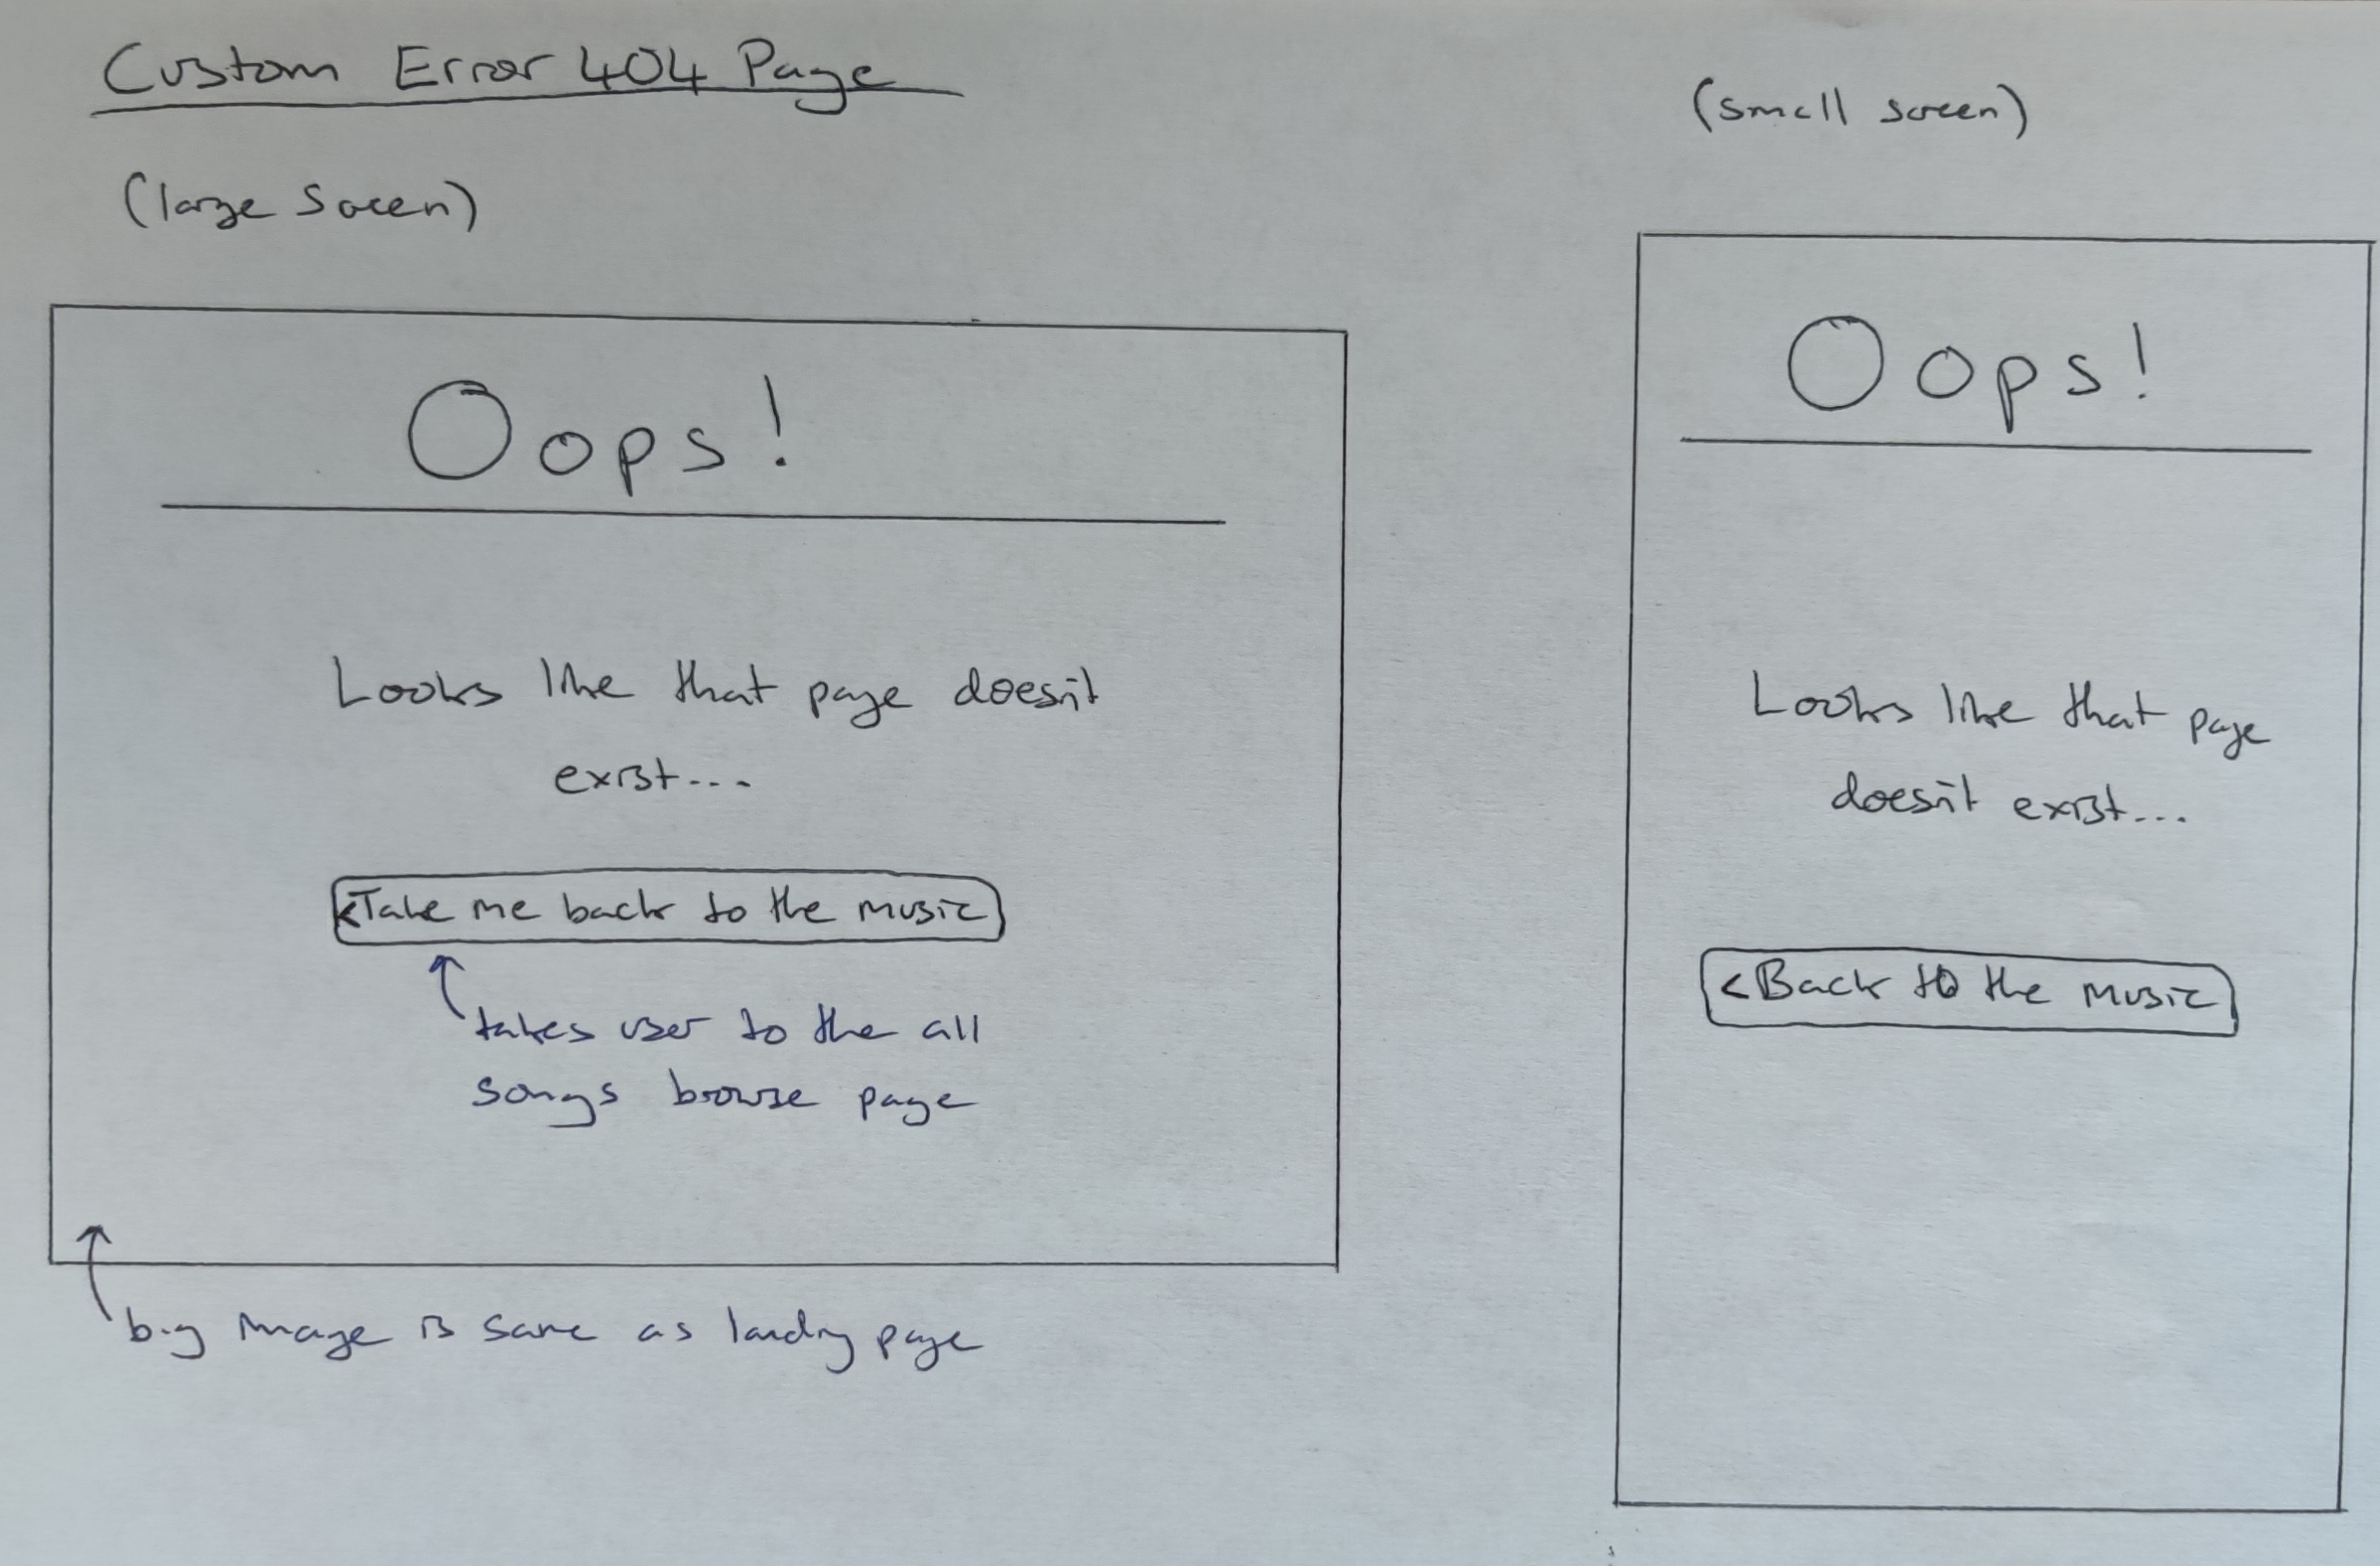 Custom Error 404 Page
(large screen)
Oops!
Looks like that page doesn't
exist...
<Take me back to the music
takes user to the all
songs browse page
big image is same as landing page
(small screen)
Oops!
Looks like that page
doesn't exist...
<Back to the music